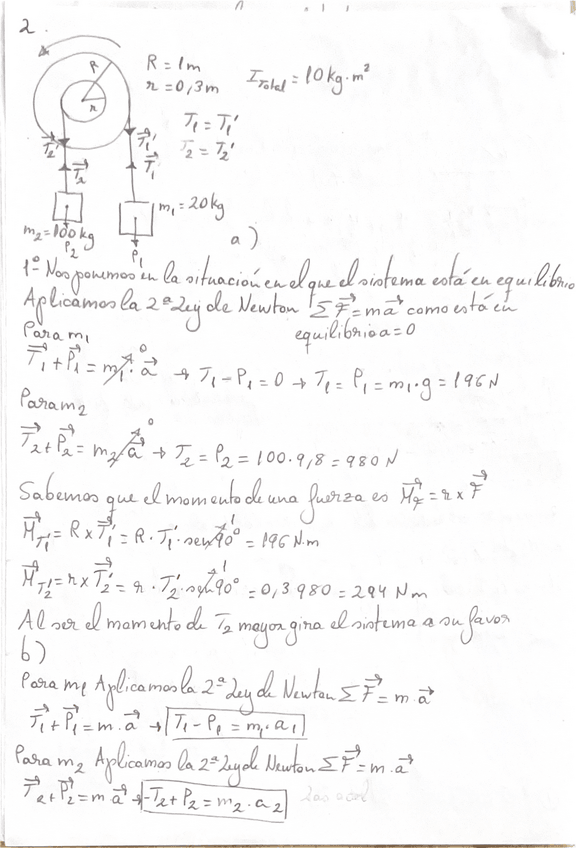 2.
R = 1m
r = 0,3m
I_Total = 10 kg·m²
R
r
T₁ = T₁'
T₂ = T₂'
T₂'
T₁'
T₂
T₁
m₁ = 20kg
m₂ = 100kg
P₂
P₁
a)
1º Nos ponemos en la situación en el que el sistema está en equilibrio
Aplicamos la 2ª Ley de Newton ΣF = ma como está en
equilibrio a = 0
Para m₁
T₁ + P₁ = m₁·a⁰ → T₁ - P₁ = 0 → T₁ = P₁ = m₁·g = 196N
Para m₂
T₂ + P₂ = m₂ a⁰ → T₂ = P₂ = 100·9,8 = 980 N
Sabemos que el momento de una fuerza es M_F = r x F
M_T₁' = R x T₁' = R · T₁' · sen 90° ¹ = 196 N·m
M_T₂' = r x T₂' = r · T₂' · sen 90° ¹ = 0,3·980 = 294 Nm
Al ser el momento de T₂ mayor gira el sistema a su favor
b)
Para m₁ Aplicamos la 2ª Ley de Newton ΣF = m·a
T₁ + P₁ = m·a → T₁ - P₁ = m₁·a₁
Para m₂ Aplicamos la 2ª Ley de Newton ΣF = m·a
T₂ + P₂ = m a → -T₂ + P₂ = m₂·a₂